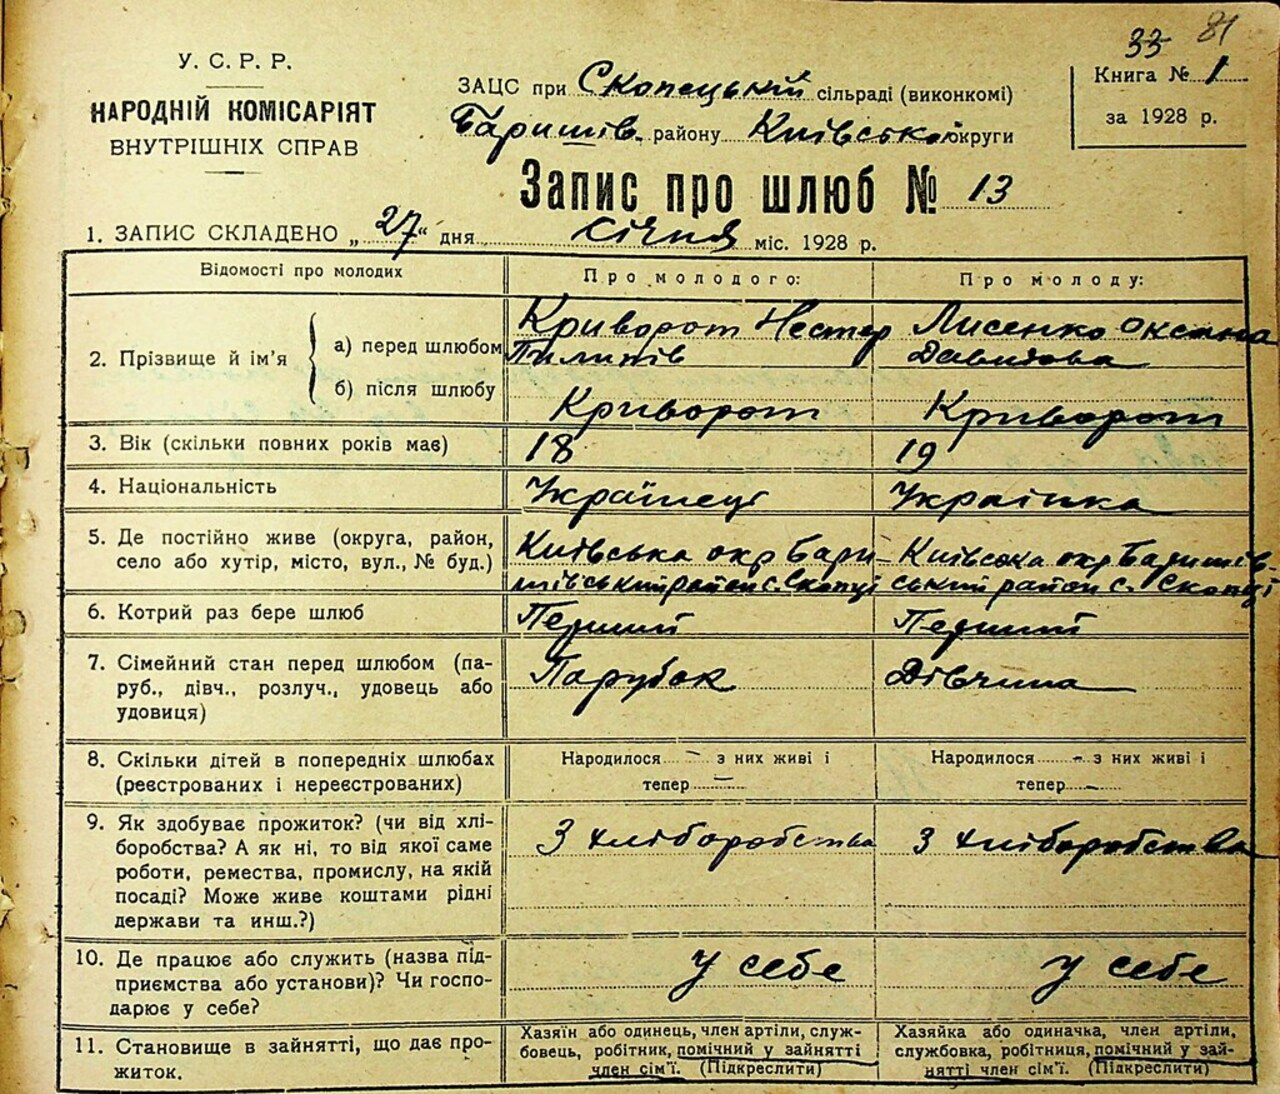 33 81
У. С. Р. Р.
НАРОДНІЙ КОМІСАРІЯТ
ВНУТРІШНІХ СПРАВ
ЗАЦС при Скопецькій сільраді (виконкомі)
Баришів. району Київської округи
Книга № 1
за 1928 р.
Запис про шлюб № 13
1. ЗАПИС СКЛАДЕНО „27“ дня січня міс. 1928 р.
Відомості про молодих
Про молодого:
Про молоду:
2. Прізвище й ім’я
а) перед шлюбом
б) після шлюбу
Криворот Нестер
Пилипів
Криворот
Лисенко Оксана
Давидова
Криворот
3. Вік (скільки повних років має)
18
19
4. Національність
Українець
Українка
5. Де постійно живе (округа, район,
село або хутір, місто, вул., № буд.)
Київська окр Бари-
шівський район с. Скопці
Київська окр Баришів-
ський район с. Скопці
6. Котрий раз бере шлюб
Перший
Перший
7. Сімейний стан перед шлюбом (па-
руб., дівч., розлуч., удовець або
удовиця)
Парубок
Дівчина
8. Скільки дітей в попередніх шлюбах
(реєстрованих і нереєстрованих)
Народилося – з них живі і
тепер –
Народилося – з них живі і
тепер –
9. Як здобуває прожиток? (чи від хлі-
боробства? А як ні, то від якої саме
роботи, ремества, промислу, на якій
посаді? Може живе коштами рідні
держави та инш.?)
З хліборобства
З хліборобства
10. Де працює або служить (назва під-
приємства або установи)? Чи госпо-
дарює у себе?
у себе
у себе
11. Становище в зайнятті, що дає про-
житок.
Хазяїн або одинець, член артіли, служ-
бовець, робітник, помічний у зайнятті
член сім’ї. (Підкреслити)
Хазяйка або одиначка, член артіли,
службовка, робітниця, помічний у зай-
нятті член сім’ї. (Підкреслити)